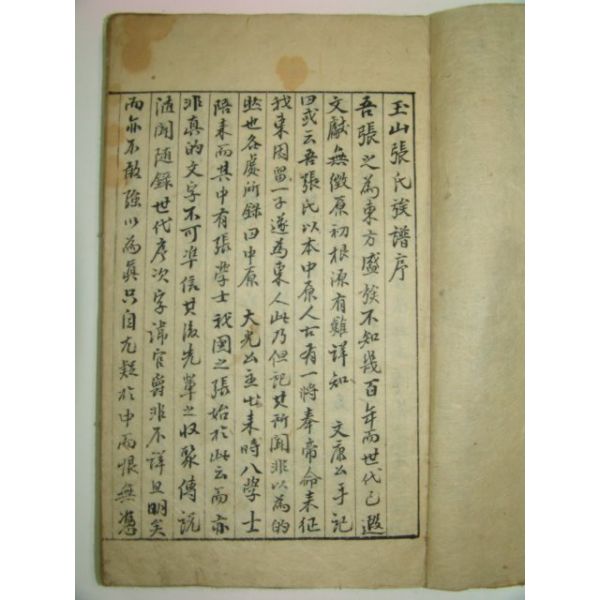 玉山張氏族譜序
吾張之爲東方盛族不知幾百年而世代已遐
文獻無徵原初根源有難詳知 文康公手記
曰或云吾張氏以本中原人古有一將奉帝命來征
我東因留一子遂爲東人此乃但記其所聞非以爲的
然也各處所錄曰中原 大光公主出來時八學士
陪來而其中有張學士我國之張始於此云而亦
非眞的文字不可準信其後先輩之收聚傳說
隨聞隨錄世代序次字諱官爵非不詳且明矣
而亦不敢强以爲眞只自尤疑於中而恨無憑